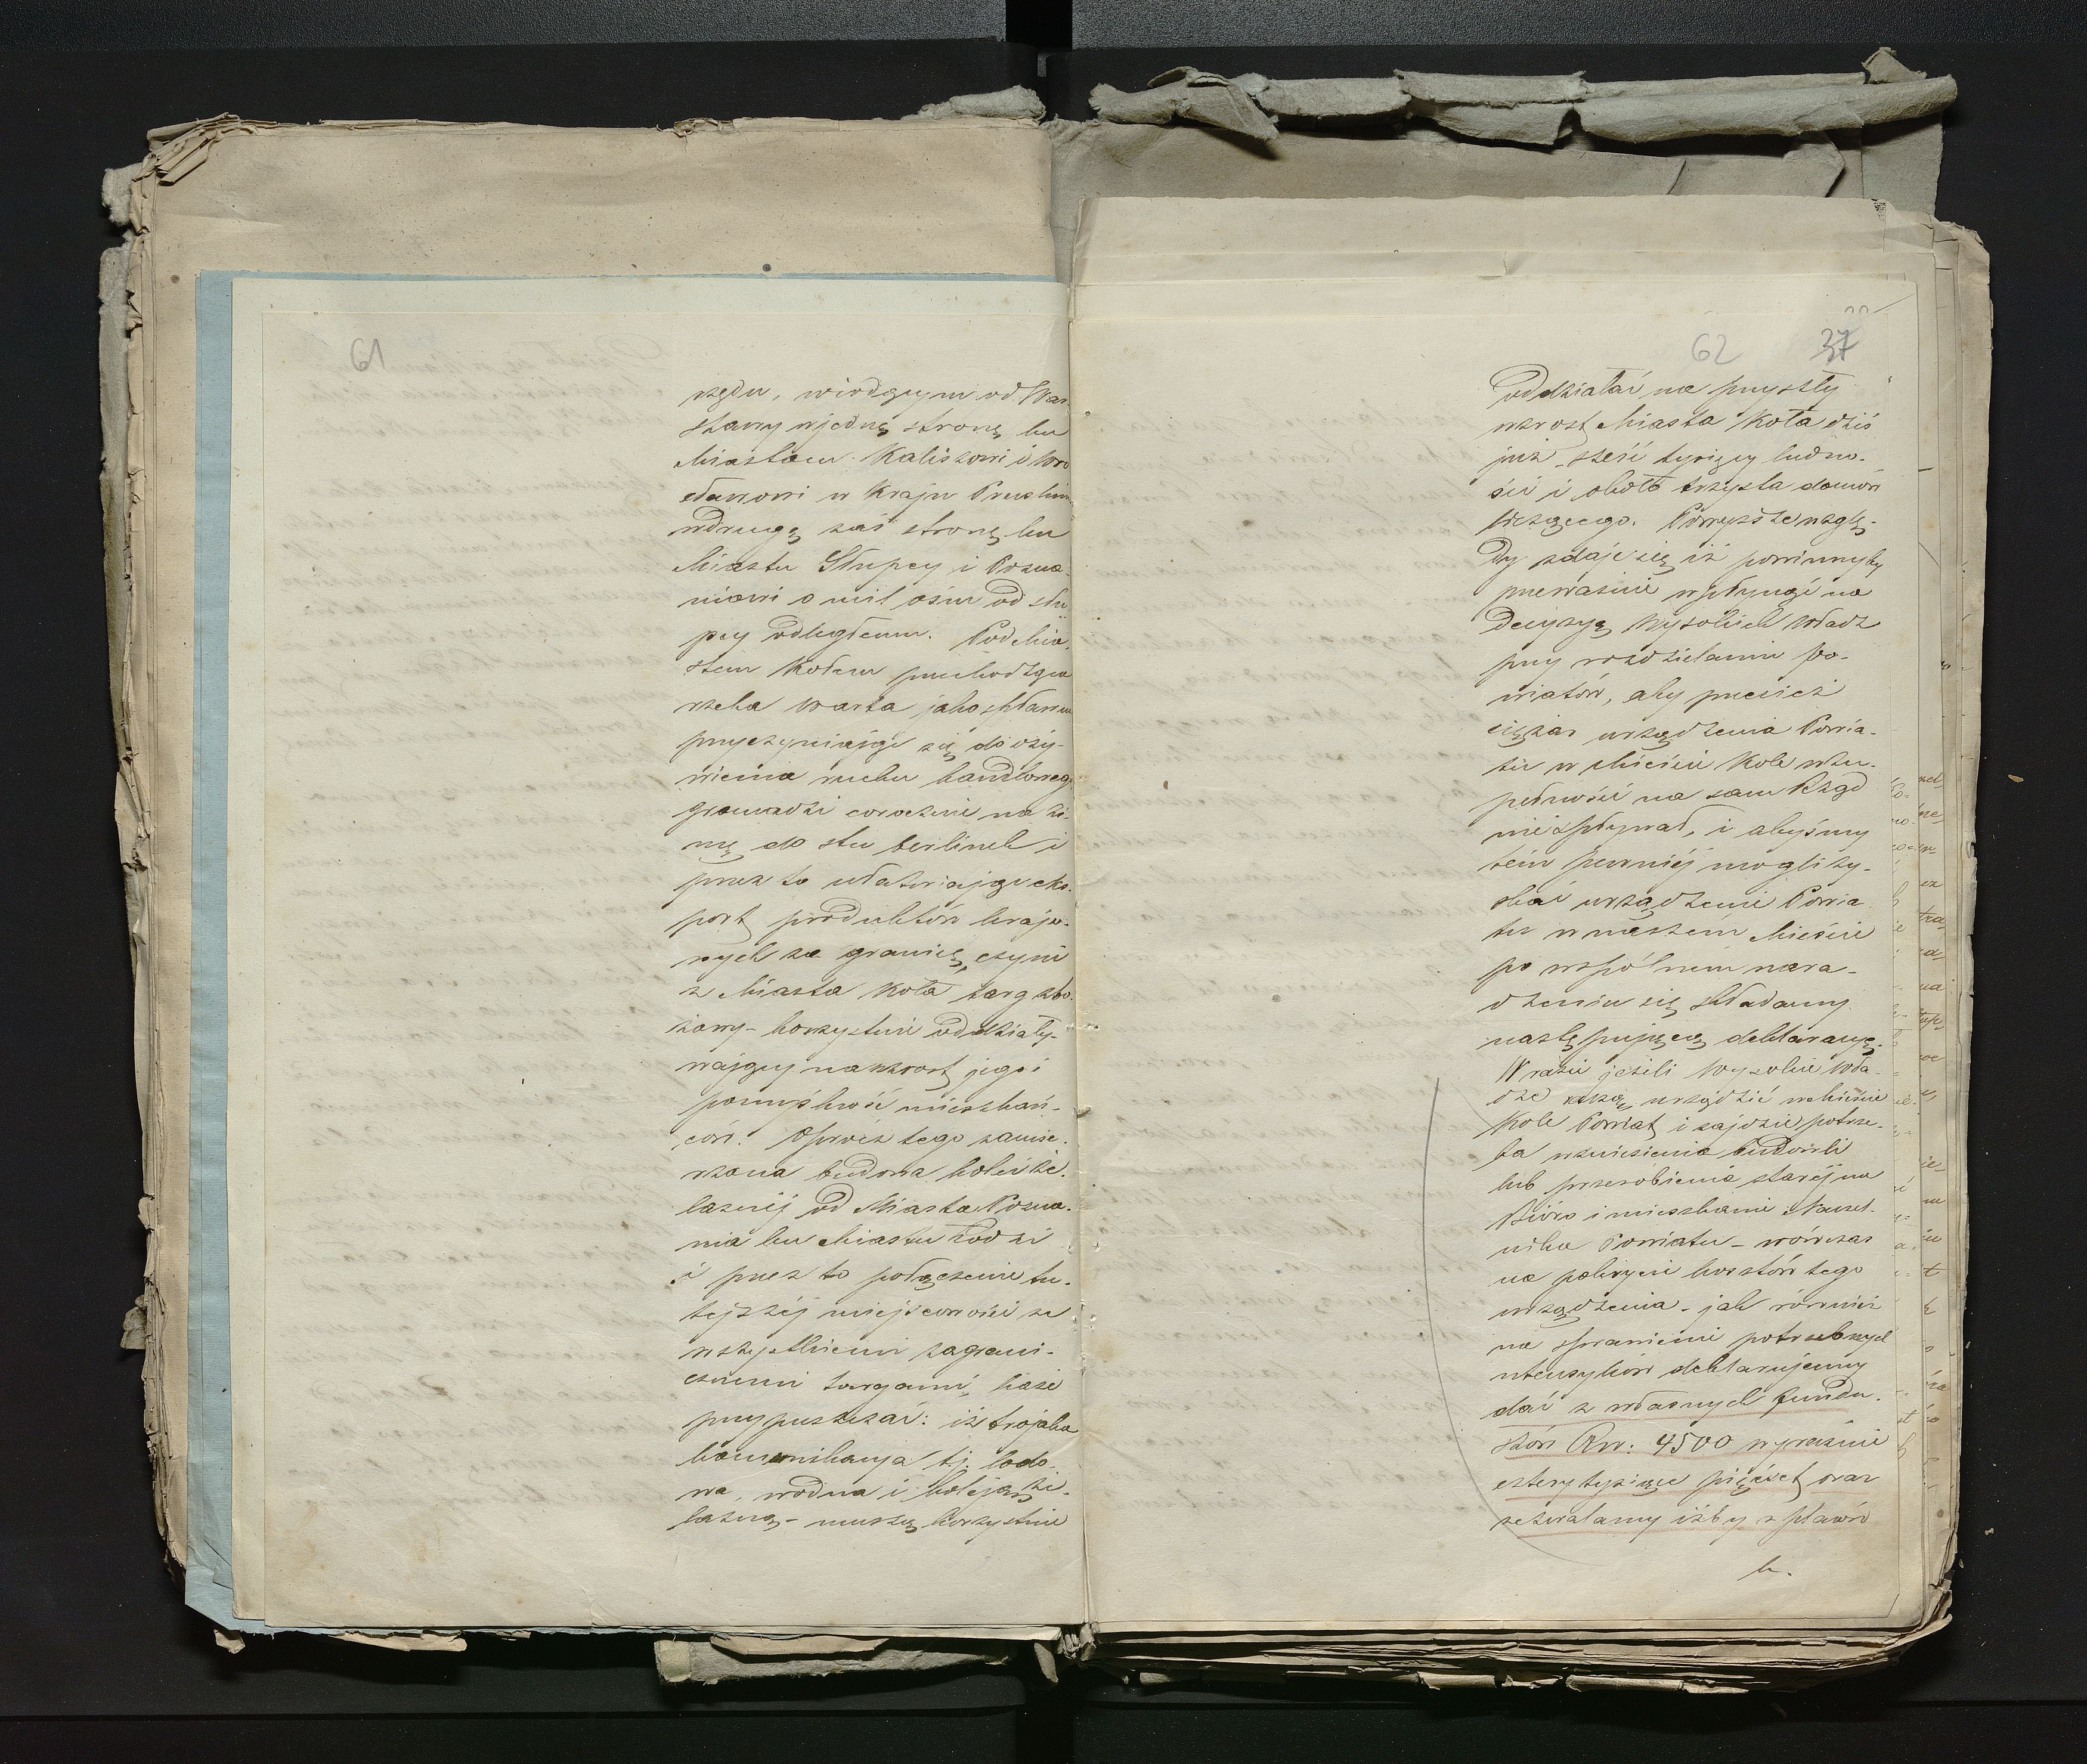 61
rzędu, wiodącym od War
szawy w jednę stronę ku
Miastom Kaliszowi i Wro
cławowi w Kraju Pruskim
w drugą zaś stronę ku
Miastu Słupcy i Pozna-
niowi o mil ośm od Słu
pcy odległemu. Pod Mia-
stem Kołem przechodząca
rzeka Warta jako spławna
przyczyniając się do oży-
wienia ruchu handlowego
gromadzi corocznie na zi-
mę do stu berlinek i
przez to ułatwiając eks-
port produktów krajo-
wych za granicę, czyni
z Miasta Koła targ zbo-
żowy - korzystnie oddziały-
wający na wzrost jego i
pomyślność mieszkań-
ców. Oprócz tego zamie-
rzona budowa kolei że-
laznéj od Miasta Pozna-
nia ku Miastu Łodzi
i przez to połączenie tu-
tejszéj miejscowości ze
wszystkiemi zagrani-
cznemi targami, każe
przypuszczać: iż trojaka
komunikacya t.j. lądo-
wa, wodna i koleją że-
lazną - muszą korzystnie
62 37
oddziałać na przyszły
wzrost Miasta Koła dziś
już sześć tysięcy ludno-
ści i około trzysta domów
liczącego. Powyższe wzglę-
dy zdaje się iż powinnyby
przeważnie wpłynąć na
Decyzyą Wysokich Władz
przy rozdzielaniu Po-
wiatów, aby przecież
ciężar urządzenia Powia-
tu w Mieście Kole w zu-
pełności na sam Rząd
nie spływał, i abyśmy
tém pewniéj mogli zy-
skać urządzenie Powia
tu w naszém Mieście
po wspólnem nara-
dzeniu się składamy
następującą deklaracyę.
W razie jeżeli Wysokie Wła-
dze każą urządzić w Mieście
Kole Powiat i zajdzie potrze-
ba wzniesienia budowli
lub przerobienia staréj na
Biuro i mieszkanie Naczel-
nika Powiatu - wówczas
na pokrycie kosztów tego
urządzenia - jak również
na sprawienie potrzebnych
utensyliów deklarujemy
dać z własnych fundu-
szów Rsr: 4500 wyraźnie
cztery tysiące pięćset oraz
zezwalamy iżby z spławów